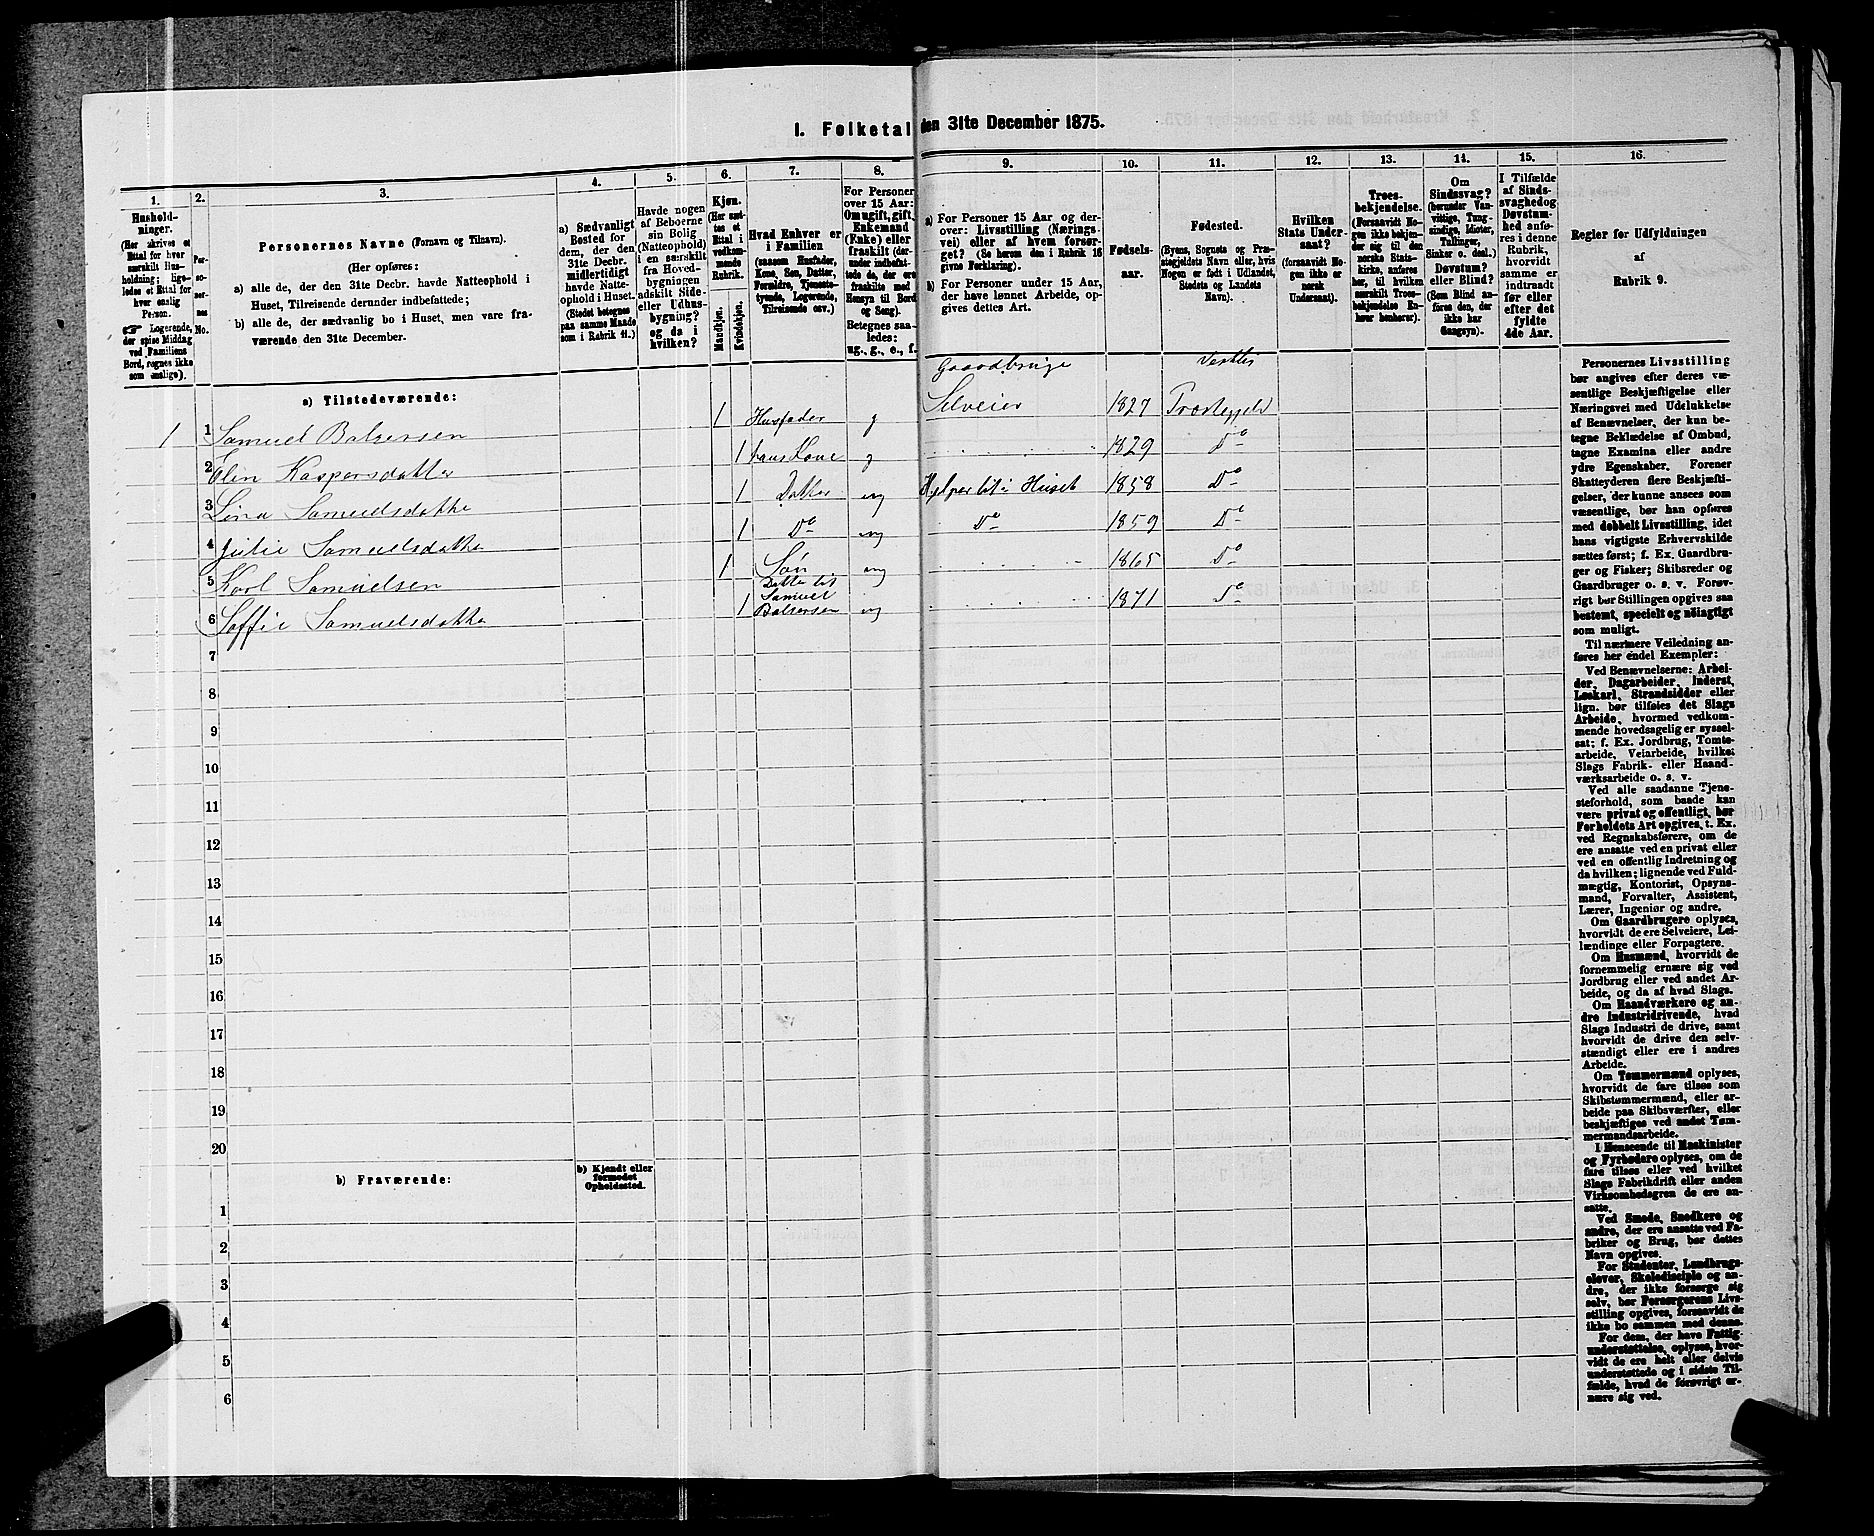 I. Folketal den 31te December 1875.
1.
Hushold-
ninger.
(Her skrives et
Ettal for hver
særskilt Hus-
holdning; lige-
ledes et Ettal for
hver enslig
Person.
☞ Logerende,
der spise Middag
ved Familiens
Bord, regnes ikke
som enslige).
2.
Per-
so-
ner-
nes
No.
3.
Personernes Navne (Fornavn og Tilnavn).
(Her opføres:
a) alle de, der den 31te Decbr. havde Natteophold i
Huset, Tilreisende derunder indbefattede;
b) alle de, der sædvanlig bo i Huset, men vare fra-
værende den 31te December.
4.
a) Sædvanligt
Bosted for
dem, der den
31te Decbr.
midlertidigt
havde Natte-
ophold i Huset.
(Stedet betegnes
paa samme Maade
som i Rubrik 11.)
5.
Havde nogen
af Beboerne
sin Bolig
(Natteophold)
i en særskilt
fra Hoved-
bygningen
adskilt Side-
eller Udhus-
bygning?
og da i
hvilken?
6.
Kjøn.
(Her sæt-
tes et
Ettal i
vedkom-
mende
Rubrik.
Mandkjøn.
Kvindekjøn.
7.
Hvad Enhver er
i Familien
(saasom Husfader,
Kone, Søn, Datter,
Forældre, Tjeneste-
tyende, Logerende,
Tilreisende osv.)
8.
For Personer
over 15 Aar:
Om ugift, gift,
Enkemand
(Enke) eller
fraskilt (der-
under indbefat-
tede de, der ere
fraskilte med
Hensyn til Bord
og Seng).
Betegnes saa-
ledes:
ug., g., e., f.
9.
a) For Personer 15 Aar og der-
over: Livsstilling (Nærings-
vei) eller af hvem forsør-
get? (Se herom den i Rubrik 16
givne Forklaring).
b) For Personer under 15 Aar,
der have lønnet Arbeide, op-
gives dettes Art.
10.
Fødsels-
aar.
11.
Fødested.
(Byens, Sognets og Præ-
stegjeldets Navn eller, hvis
Nogen er født i Udlandet,
Stedets og Landets
Navn).
12.
Hvilken
Stats Under-
saat?
(forsaavidt No-
gen ikke er
norsk
Undersaat).
13.
Troes-
bekjendelse.
(Forsaavidt No-
gen ikke bekjen-
der sig til den
norske Stats-
kirke, anføres
her, til hvilken
særskilt Troes-
bekjendelse En-
hver henhører).
14.
Om
Sindssvag?
(herunder Van-
vittige, Tung-
sindige, Idioter,
Tullinger,
Sinker o. desl.)
Døvstum?
eller Blind?
(Som Blind an-
føres den, der
ikke har
Gangsyn).
15.
I Tilfælde
af Sinds-
svaghed og
Døvstum-
hed anfø-
res i denne
Rubrik,
hvorvidt
samme er
indtraadt
før eller
efter det
fyldte
4de Aar.
16.
Regler for Udfyldningen
af
Rubrik 9.
a) Tilstedeværende:
Gaardbruge Vestbii
1 1 Samuel Balsersen 1 Husfader g Selveier 1827 Præstegjeld
2 Elen Kaspersdatter 1 hans Kone g 1829 Do
3 Lina Samuelsdatter 1 Datter ug Hjelper til i Huset 1858 Do
4 Julie Samuelsdatter 1 Do ug Do 1859 Do
5 Karl Samuelsen 1 Søn ug 1865 Do
6 Soffie Samuelsdatter 1 Datter til Samuel Balsersen ug 1871 Do
7
8
9
10
11
12
13
14
15
16
17
18
19
20
b) Fraværende:
b) Kjendt eller
formodet
Opholdssted.
1
2
3
4
5
6
Personernes Livsstilling
bør angives efter deres væ-
sentlige Beskjæftigelse eller
Næringsvei med Udelukkelse
af Benævnelser, der kun be-
tegne Beklædelse af Ombud,
tagne Examina eller andre
ydre Egenskaber. Forener
Skatteyderen flere Beskjæfti-
gelser, der kunne ansees som
væsentlige, bør han opføres
med dobbelt Livsstilling, idet
hans vigtigste Erhvervskilde
sættes først; f. Ex. Gaardbru-
ger og Fisker; Skibsreder og
Gaardbruger o. s. v. Forøv-
rigt bør Stillingen opgives saa
bestemt, specielt og nøiagtigt
som muligt.
Til nærmere Veiledning an-
føres her endel Exempler:
Ved Benævnelserne: Arbei-
der, Dagarbeider, Inderst,
Løskarl, Strandsidder eller
lign. bør tilføies det Slags
Arbeide, hvormed vedkom-
mende hovedsagelig er syssel-
sat; f. Ex. Jordbrug, Tomte-
arbeide, Veiarbeide, hvilket
Slags Fabrik- eller Haand-
værksarbeide o. s. v.
Ved alle saadanne Tjene-
steforhold, som baade kan
være privat og offentligt, bør
Forholdets Art opgives, f. Ex.
ved Regnskabsførere, om de
ere ansatte ved en privat eller
ved en offentlig Indretning og
da hvilken; lignende ved Fuld-
mægtig, Kontorist, Opsyns-
mand, Forvalter, Assistent,
Lærer, Ingeniør og andre.
Om Gaardbrugere oplyses,
hvorvidt de ere Selveiere, Lei-
lændinge eller Forpagtere.
Om Husmænd, hvorvidt de
fornemmelig ernære sig ved
Jordbrug eller ved andet Ar-
beide, og da af hvad Slags.
Om Haandværkere og an-
dre Industridrivende, hvad
Slags Industri de drive, samt
hvorvidt de drive den selv-
stændigt eller ere i andres
Arbeide.
Om Tømmermænd oplyses,
hvorvidt de fare tilsøs som
Skibstømmermænd, eller ar-
beide paa Skibsværfter, eller
beskjæftiges ved andet Tøm-
mermandsarbeide.
I Henseende til Maskinister
og Fyrbødere oplyses, om de
fare tilsøs eller ved hvilket
Slags Fabrikdrift eller anden
Virksomhedsgren de ere an-
satte.
Ved Smede, Snedkere og
andre, der ere ansatte ved Fa-
briker og Brug, bør dettes
Navn opgives.
For Studenter, Landbrugs-
elever, Skoledisciple og an-
dre, der ikke forsørge sig
selv, bør Forsørgerens Livs-
stilling opgives, forsaavidt de
ikke bo sammen med denne.
For dem, der have Fattig-
understøttelse, oplyses, hvor-
vidt de ere helt eller delvis
understøttede og i sidste Til-
fælde, hvad de forøvrigt er-
nære sig ved.